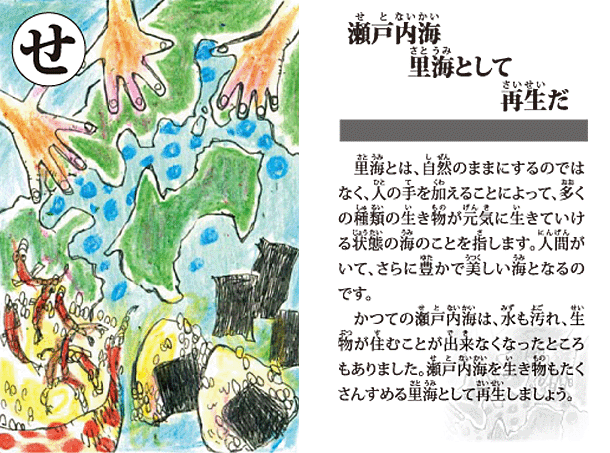 せ
瀬戸内海
里海として
再生だ
里海とは、自然のままにするのでは
なく、人の手を加えることによって、多く
の種類の生き物が元気に生きていけ
る状態の海のことを指します。人間が
いて、さらに豊かで美しい海となるの
です。
かつての瀬戸内海は、水も汚れ、生
物が住むことが出来なくなったところ
もありました。瀬戸内海を生き物もたく
さんすめる里海として再生しましょう。